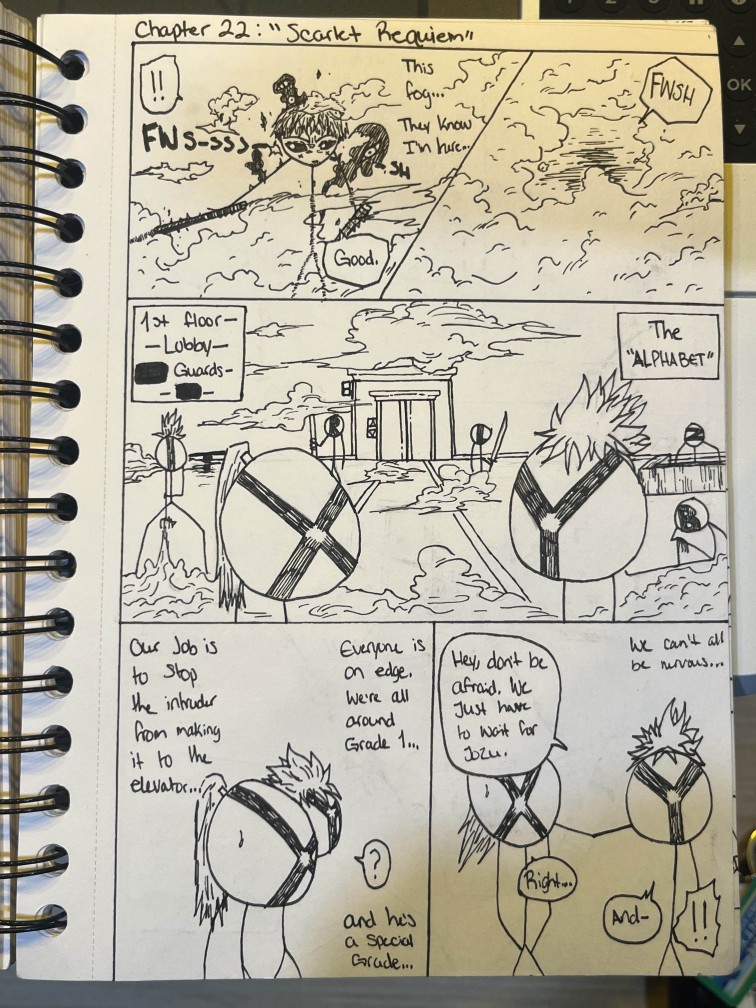 Chapter 22: "Scarlet Requiem"
!!
FWS-SSS
This
fog...
They know
I'm here...
SH
Good.
FWSH
1st floor-
-Lobby-
Guards-
The
"ALPHABET"
Our Job is
to stop
the intruder
from making
it to the
elevator...
Everyone is
on edge.
We're all
around
Grade 1...
?
and he's
a special
Grade...
Hey, don't be
afraid. We
Just have
to wait for
Jozu.
We can't all
be nervous...
Right...
And-
!!
OK